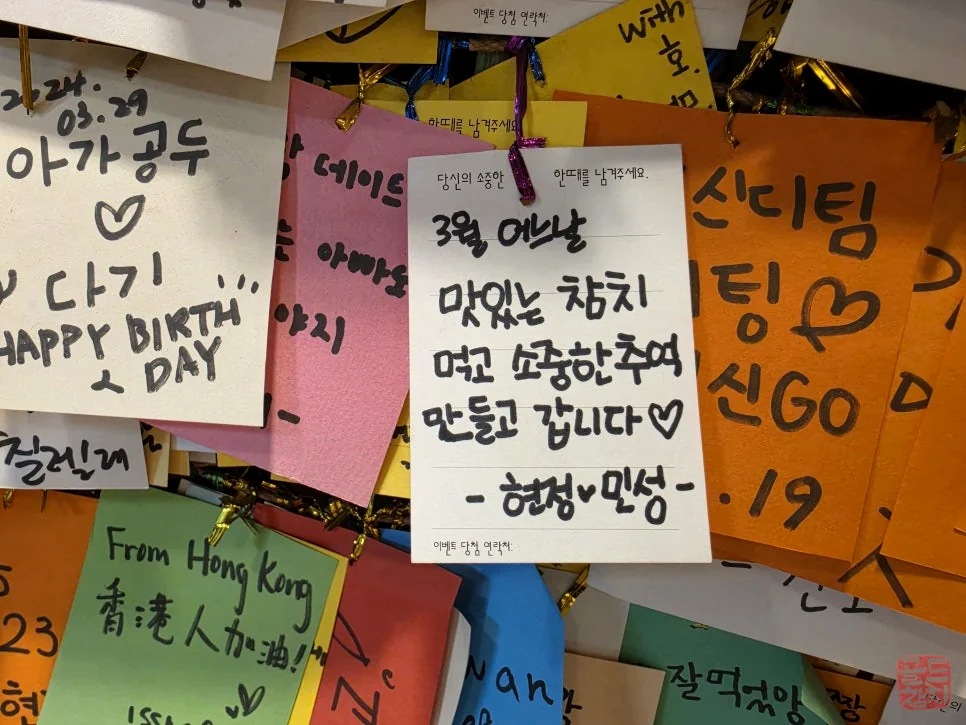 이벤트 당첨 연락처:
with
호.
2024.
03.29
아가 공두
♡
다기
HAPPY BIRTH
DAY
한때를 남겨주세요.
데이트
아빠도
야지
당신의 소중한 한때를 남겨주세요.
3월 어느날
맛있는 참치
먹고 소중한 추여
만들고 갑니다♡
- 현정♥민성 -
이벤트 당첨 연락처:
신디팀
팅♡
신GO
.19
질레일래
From Hong Kong
香港人加油!
23
잘먹었앙
짱